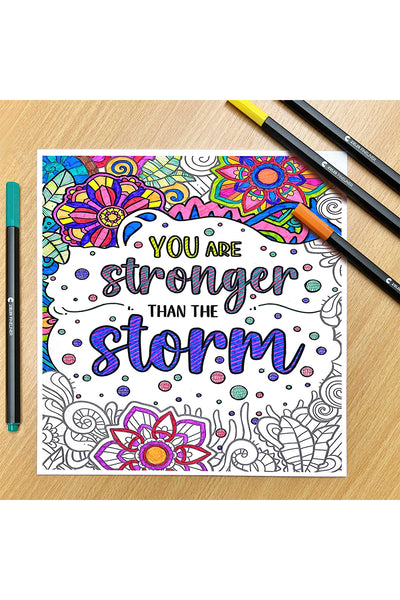 YOU ARE
stronger
THAN THE
storm